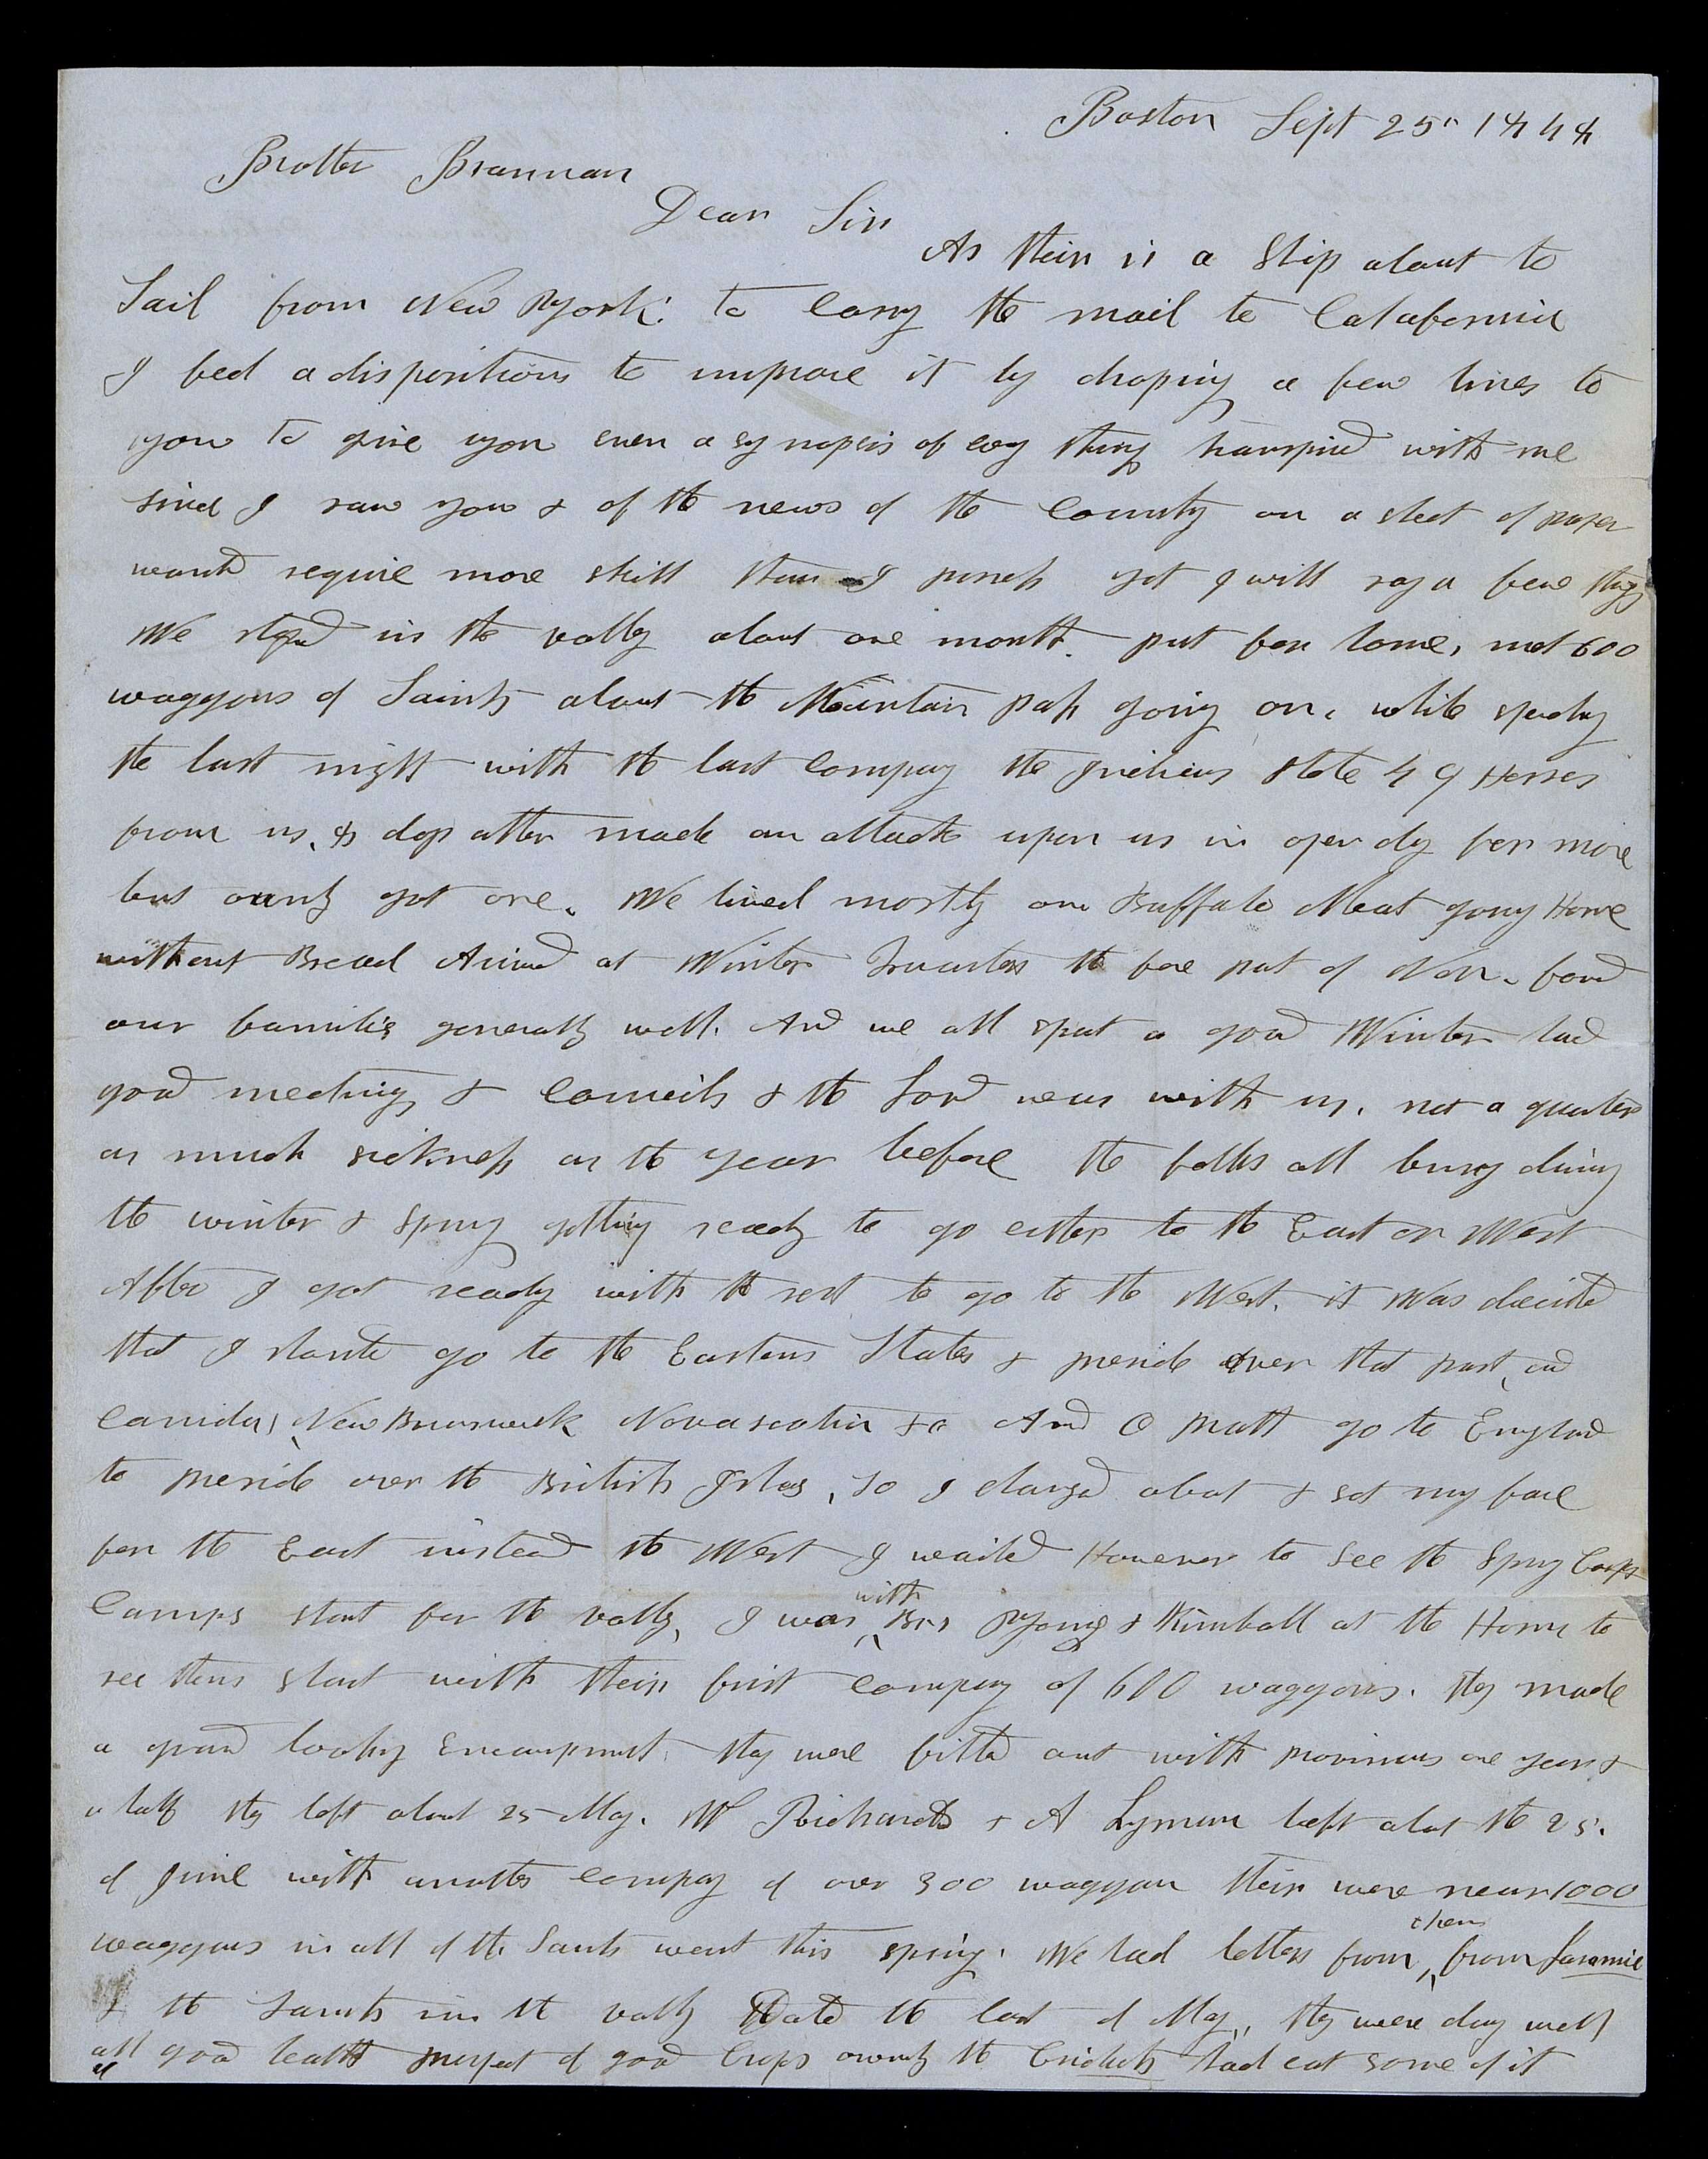 Boston Sept 25th 1848
Brother Brannan
Dear Sir
As their is a Ship about to
Sail from New York to Carry the mail to Calafornia
I feel a disposition to improve it by droping a few lines to
you to give you even a synopsis of evry thing transpired with me
since I saw you & of the news of the County on a sheet of paper
would require more skill than I possess yet I will say a few things
We stopd in the vally about one month. put for home, met 600
waggons of Saints about the Mountain pass going on, while spending
the last night with the last Company the Indians stole 49 Horses
from us, & days after made an attack upon us in open day for more
but ownly got one. We lived mostly on Buffalo Meat going Home
without Bread Arived at Winter Quarters the fore part of Nov. found
our families generally well. And we all spent a good Winter had
good meetings & Councils & the Lord was with us, not a quarter
as much sickness as the year before the folks all busy during
the winter & Spring getting ready to go either to the East or West
After I got ready with the rest to go to the West, it was decided
that I should go to the Eastern States & preside over that part, and
Canida, New Brunswick Novascotia &c And O Pratt go to England
to preside over the British Isles, so I changd about & set my face
for the East instead the West I waited However to see the Spring Camps
Camps start for the vally, I was with Brs Young & Kimball at the Horn to
see them start with their first company of 600 waggons. they made
a grand looking Encampment. they were fitted out with provisions one year &
a half they left about 25 May. W Richards & A Lyman left about the 25.
of June with another company of over 300 waggon their were near 1000
waggons in all of the Saints went this spring. We had letters from them from Laramie
& the Saints in the vally Dated the last of May, they were doing well
all good health prospect of good Crops ownly the Crickets had eat some of it